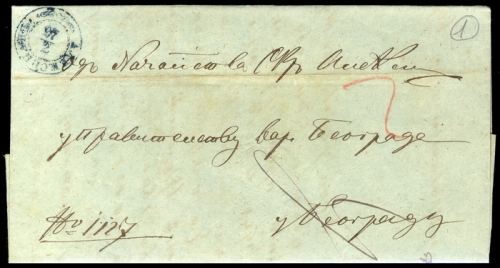 ①
Одъ Начайства Окр. Алекси
управителству вар. Београда
№ 1127
у Београду